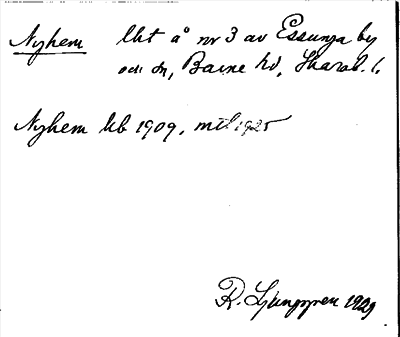 Nyhem lht å nr 3 av Essunga by
och sn, Barne hd, Skarab. l.
Nyhem kb 1909, mtl 1925
R. Ljunggren 1929